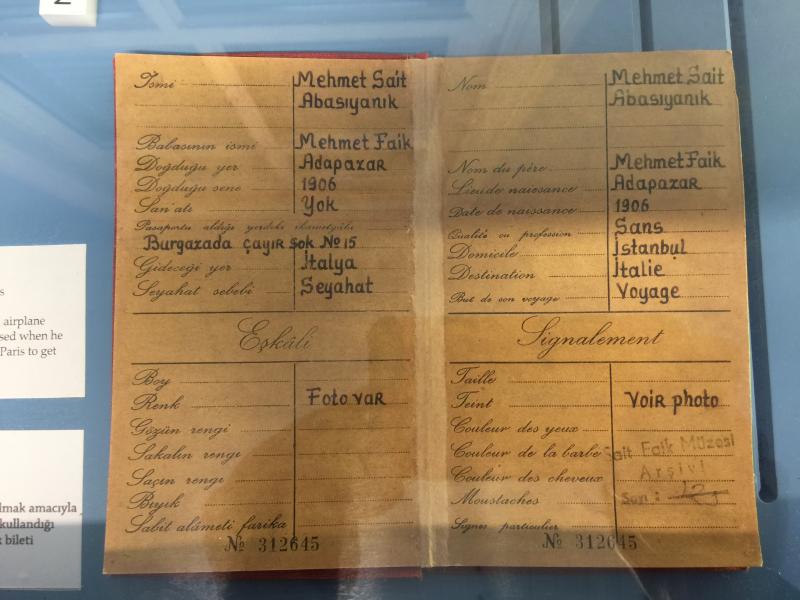 2
s
airplane
sed when he
Paris to get
lmak amacıyla
kullandığı
k bileti
İsmi Mehmet Sait
Abasıyanık
Babasının ismi Mehmet Faik
Doğduğu yer Adapazar
Doğduğu sene 1906
San'atı Yok
Pasaportu aldığı yerdeki ikametgâhı
Burgazada çayır sok No 15
Gideceği yer İtalya
Seyahat sebebi Seyahat
Eşkâli
Boy
Renk Foto var
Gözün rengi
Sakalın rengi
Saçın rengi
Bıyık
Sabit alâmeti farika
No 312645
Nom Mehmet Sait
Abasıyanık
Nom du père Mehmet Faik
Lieu de naissance Adapazar
Date de naissance 1906
Qualité ou profession Sans
Domicile İstanbul
Destination İtalie
But de son voyage Voyage
Signalement
Taille
Teint Voir photo
Couleur des yeux
Couleur de la barbe
Couleur des cheveux
Moustaches
Signes particulier
No 312645
Sait Faik Müzesi
Arşivi